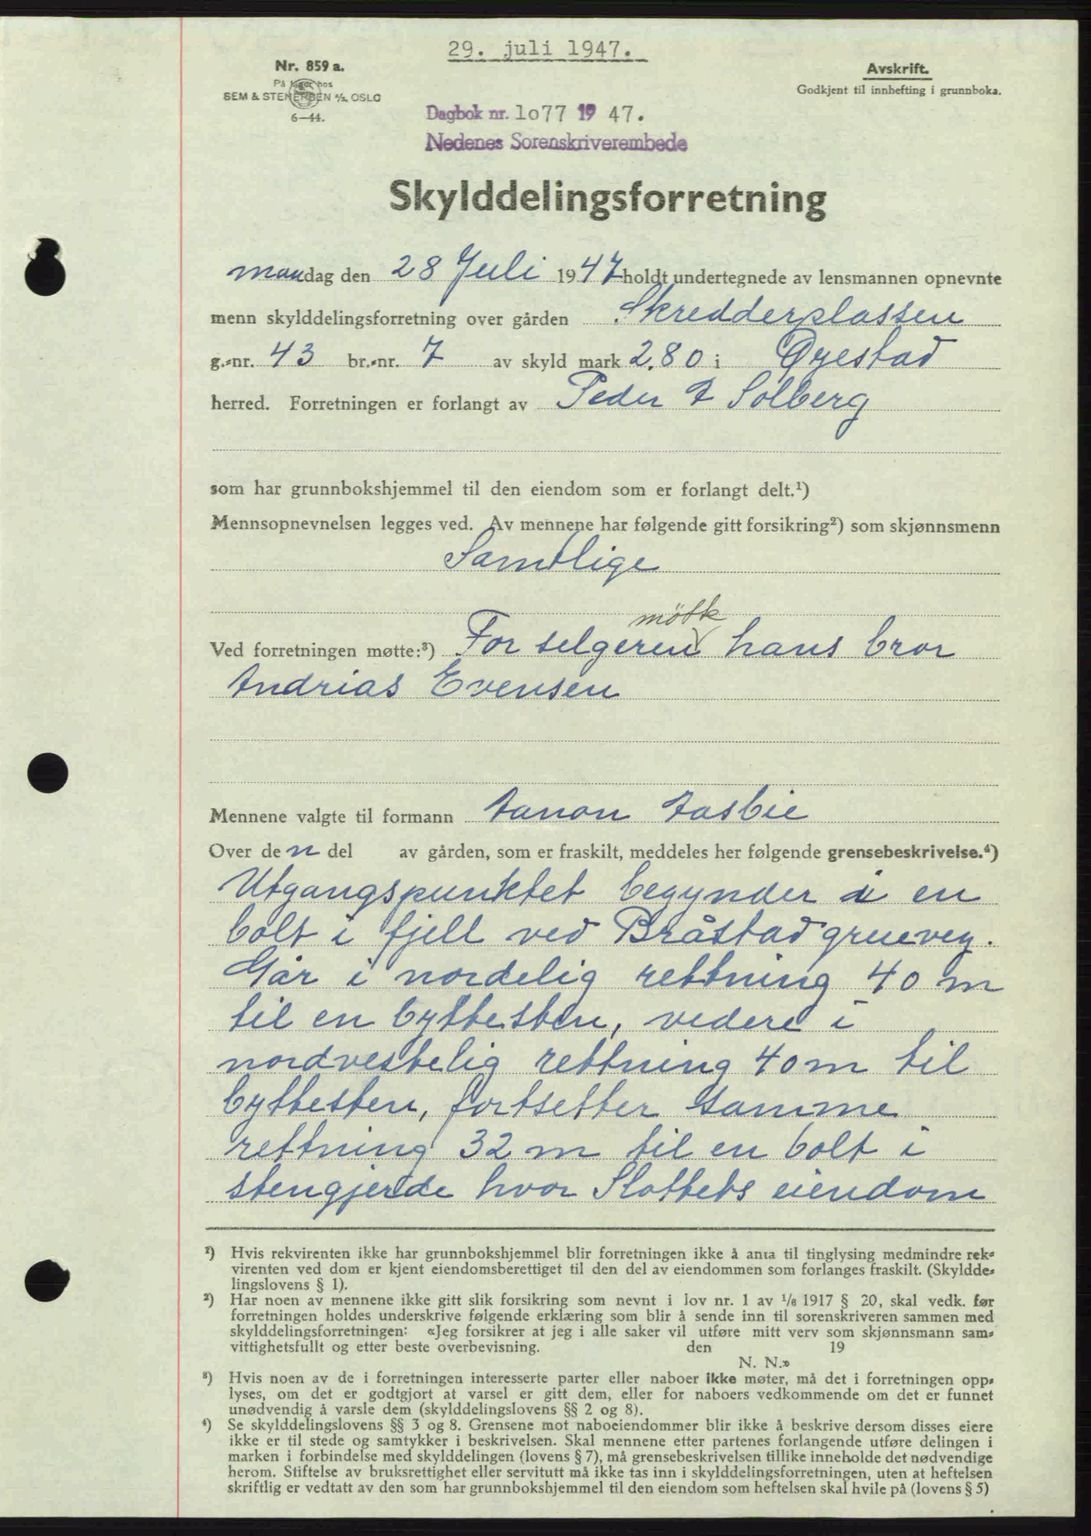 29. juli 1947.
Nr. 859 a.
På lager hos
SEM & STENERSEN A/S, OSLO
6—44.
Avskrift.
Godkjent til innhefting i grunnboka.
Dagbok nr. 1o77 19 47.
Nedenes Sorenskriverembede
Skylddelingsforretning
mandag den 28 Juli 1947 holdt undertegnede av lensmannen opnevnte
menn skylddelingsforretning over gården Skredderplassen
g.-nr. 43 br.-nr. 7 av skyld mark 2.80 i Øyestad
herred. Forretningen er forlangt av Peder E Solberg
som har grunnbokshjemmel til den eiendom som er forlangt delt.¹)
Mennsopnevnelsen legges ved. Av mennene har følgende gitt forsikring²) som skjønnsmenn
Samtlige
møtte
Ved forretningen møtte:³) For selgeren hans bror
Andrias Evensen
Mennene valgte til formann
Over den del av gården, som er fraskilt, meddeles her følgende grensebeskrivelse.⁴)
Utgangspunktet begynder i en
bolt i fjell ved Bråstad gruevey.
Går i nordelig rettning 40 m
til en byttesten, vedere i
nordvestelig rettning 40 m til
byttesten, fortsetter samme
rettning 32 m til en bolt i
stengjerde hvor Slottets eiendom
¹) Hvis rekvirenten ikke har grunnbokshjemmel blir forretningen ikke å anta til tinglysing medmindre rek-
virenten ved dom er kjent eiendomsberettiget til den del av eiendommen som forlanges fraskilt. (Skyldde-
lingslovens § 1).
²) Har noen av mennene ikke gitt slik forsikring som nevnt i lov nr. 1 av 1/8 1917 § 20, skal vedk. før
forretningen holdes underskrive følgende erklæring som blir å sende inn til sorenskriveren sammen med
skylddelingsforretningen: «Jeg forsikrer at jeg i alle saker vil utføre mitt verv som skjønnsmann sam-
vittighetsfullt og etter beste overbevisning. den 19
N. N.»
³) Hvis noen av de i forretningen interesserte parter eller naboer ikke møter, må det i forretningen opp-
lyses, om det er godtgjort at varsel er gitt dem, eller for naboers vedkommende om det er funnet
unødvendig å varsle dem (skylddelingslovens §§ 2 og 8).
⁴) Se skylddelingslovens §§ 3 og 8. Grensene mot naboeiendommer blir ikke å beskrive dersom disses eiere
ikke er til stede og samtykker i beskrivelsen. Skal mennene etter partenes forlangende utføre delingen i
marken i forbindelse med skylddelingen (lovens § 7), må grensebeskrivelsen tillike inneholde det nødvendige
herom. Stiftelse av bruksrettighet eller servitutt må ikke tas inn i skylddelingsforretningen, uten at heftelsen
skriftlig er vedtatt av den som har grunnbokshjemmel til den eiendom som heftelsen skal hvile på (lovens § 5)